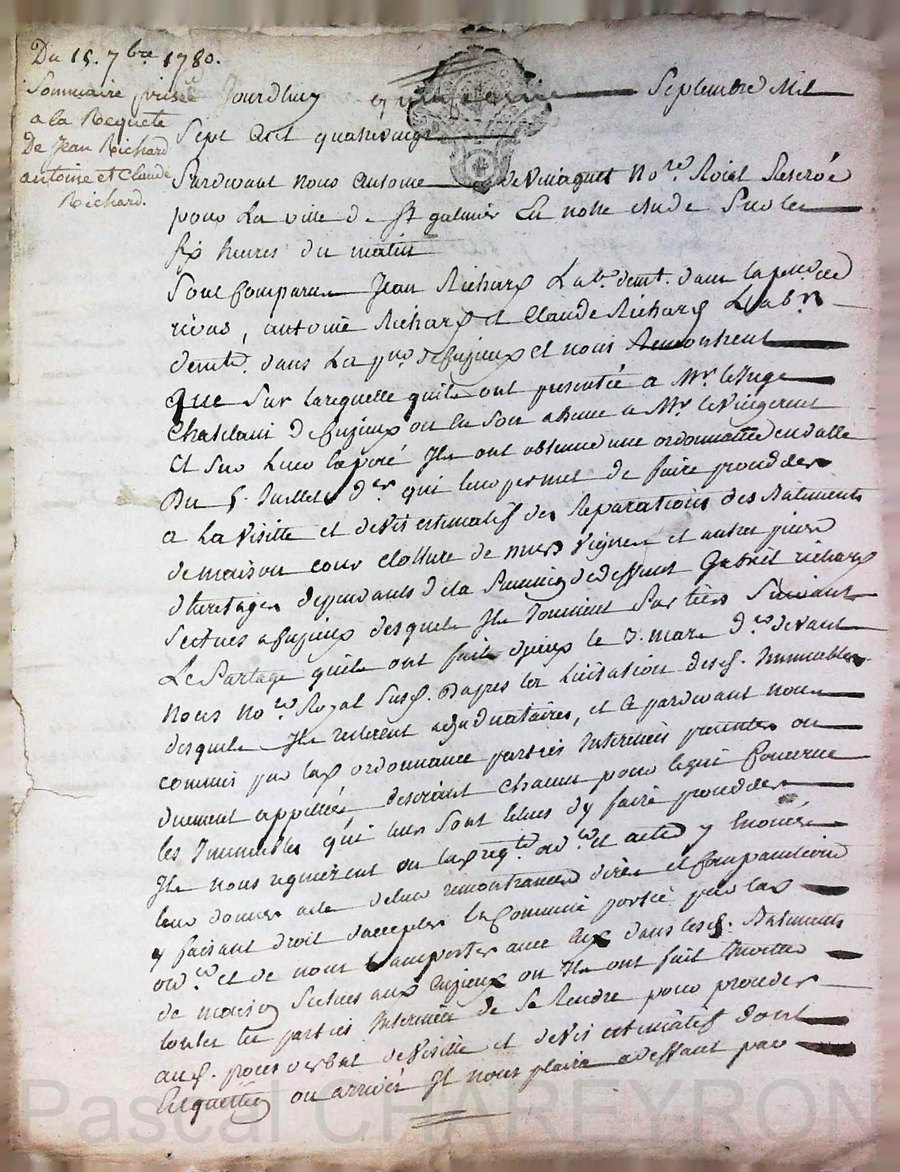 Du 15. 7bre 1780.
Sommaire prisé
a la Requete
De Jean Richard
antoine et Claude
Richard.
Jourdhuy quinzieme Septembre Mil
Sept Cent quatrevingt
Pardevant nous antoine de No.re Roial Reservé
pour La ville de St galmier En notre etude Sur les
six heures du matin
Sont Comparu Jean Richard Lab.r demt. dans la de
rivas, antoine Richard et Claude Richard Lab.rs
demts. dans La de Cuzieux et nous Remontrent
que Sur la requette quils ont presentée a Mr. le Juge
Chatelain de Cuzieux ou en Son absence a Mr le
Et sur Ils ont obtenue une ordonnance
Du 5. Juillet d.er qui leur permet de faire proceder
a La visitte et devis estimatif des Reparations des Batiments
de maison cour cloture de murs vignes et autres
d'heritages deppendants de la de deffunt Gabriel richard
Scitues a Cuzieux desquels Ils Suivant
Le Partage quils ont fait le 3. mars d.er devant
Nous No.re Royal Sousg. D'apres les Licitation desd. Immeubles
desquels Ils resterent adjudicataires, et Ce pardevant nous
commis par lad ordonnance parties Interessées presentes ou
duement appellées, desirant chacun pour ce qui Concerne
les Immeubles qui leur Sont y faire proceder
Ils nous requierent ou et actes y
leur donner acte de leur remontrances dires et Comparutions
y faisant droit daccepter la Commission portée par lad
ord.ce et de nous transporter avec Eux dans lesd. Batiments
de maison Scitues aud Cuzieux ou Ils ont fait Inviter
toutes les parties Interessées de Se Rendre pour proceder
aud. proces verbal de visitte et devis estimatif dont
ou arrivés Il nous plaira a deffaut par
Pascal CHAREYRON